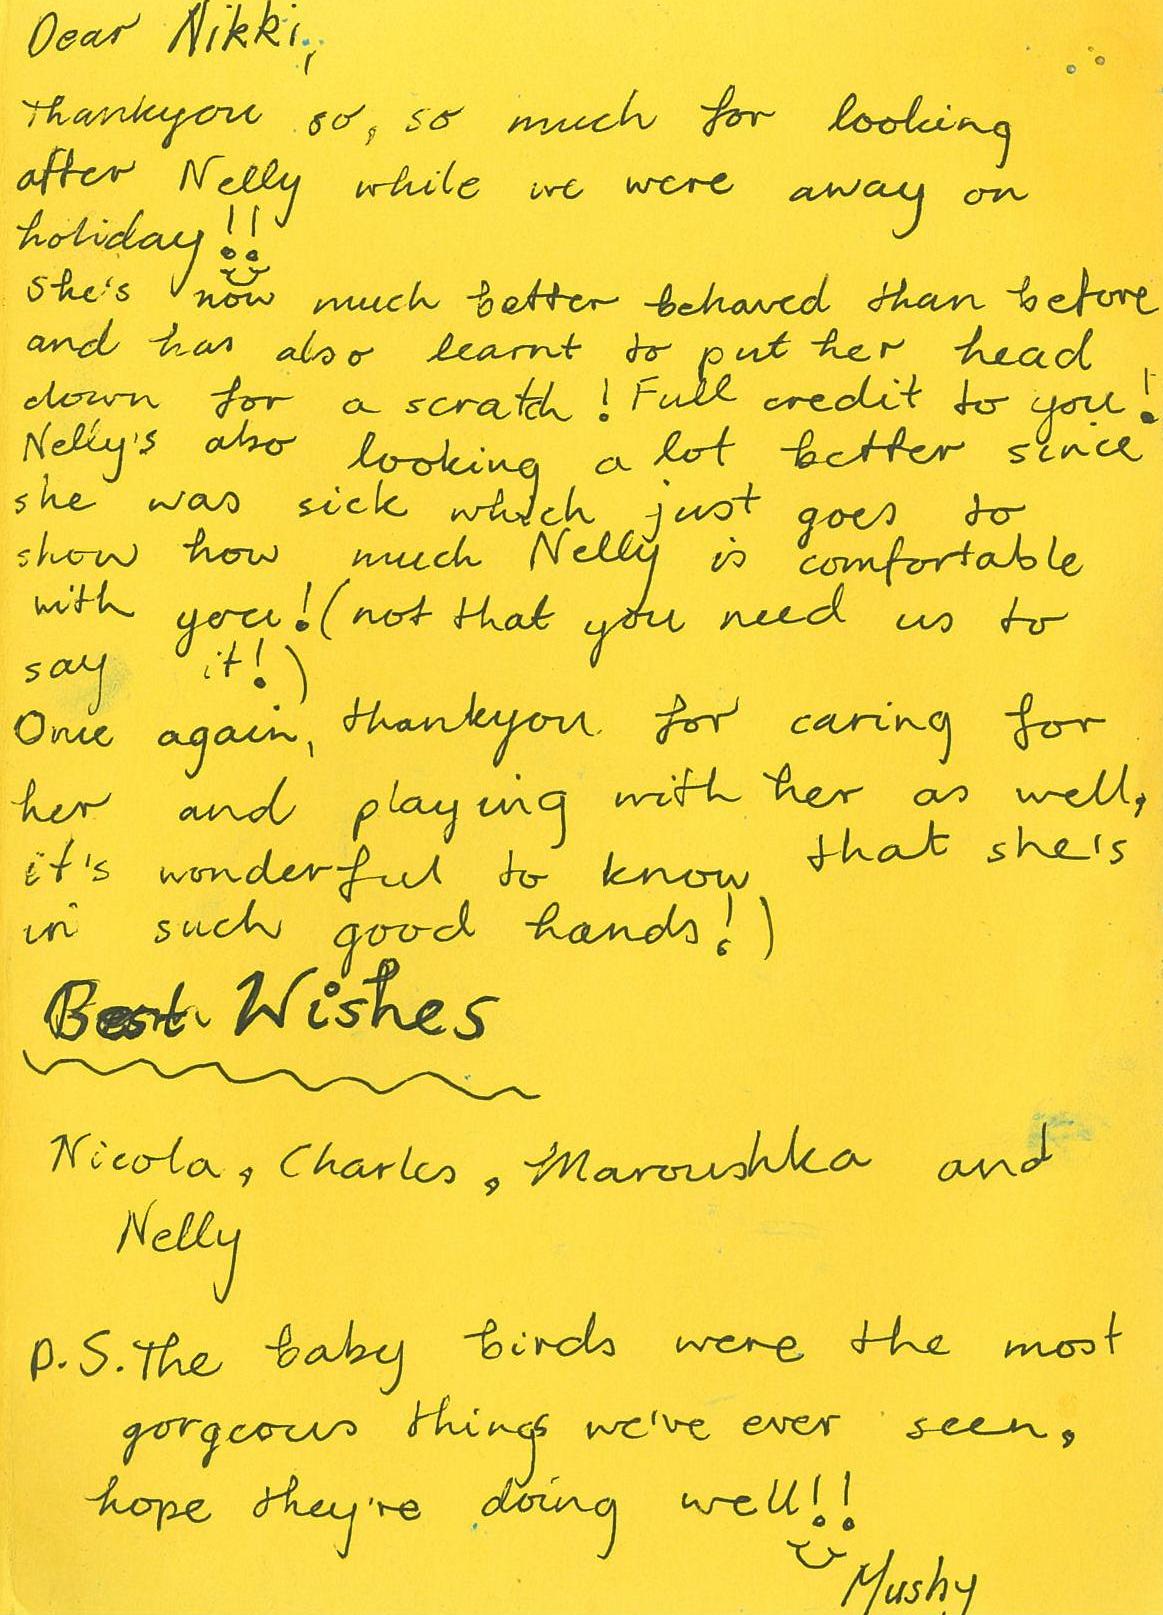 Dear Nikki,
thankyou so, so much for looking
after Nelly while we were away on
holiday!!
She's now much better behaved than before
and has also learnt to put her head
down for a scratch! Full credit to you!
Nelly's also looking a lot better since
she was sick which just goes to
show how much Nelly is comfortable
with you! (not that you need us to
say it!)
Once again, thankyou for caring for
her and playing with her as well,
it's wonderful to know that she's
in such good hands!)
Best Wishes
Nicola, Charles, Maroushka and
Nelly
P.S. The baby birds were the most
gorgeous things we've ever seen,
hope they're doing well!!
Mushy